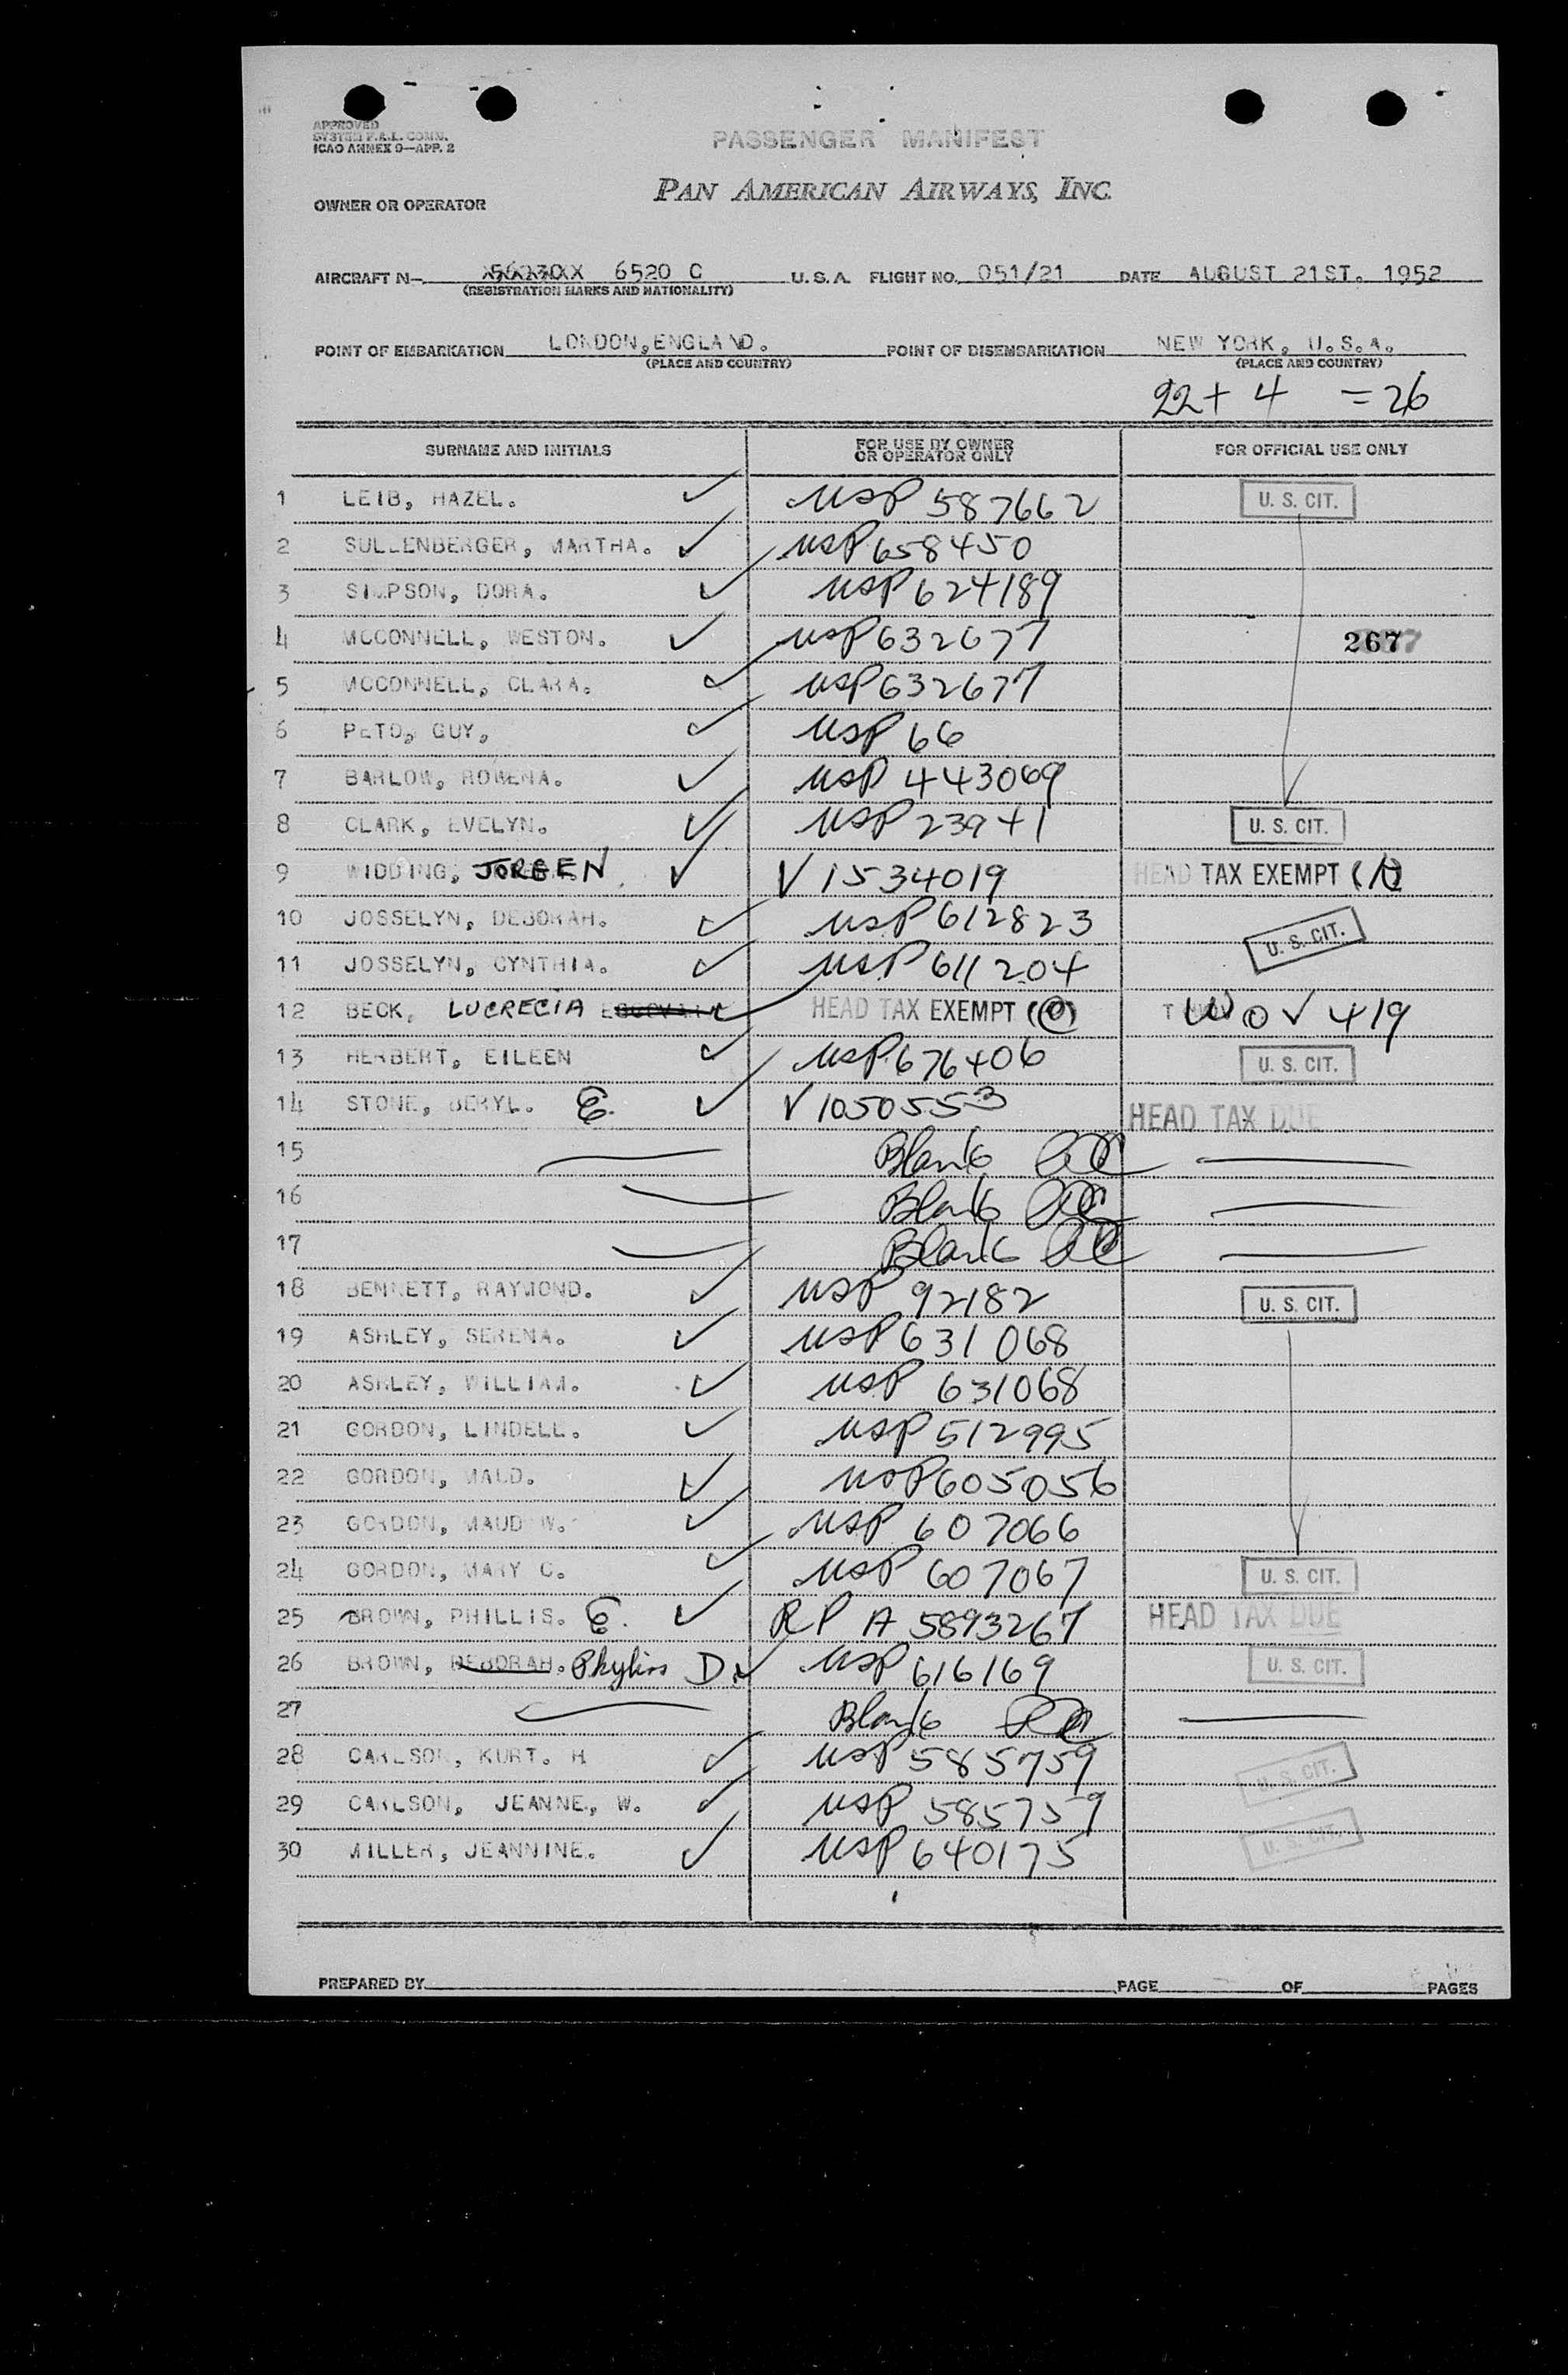 APPROVED
SYSTEM F.A.L. COMM.
ICAO ANNEX 9—APP. 2
PASSENGER MANIFEST
PAN AMERICAN AIRWAYS, INC.
OWNER OR OPERATOR
AIRCRAFT N— 6520 C U.S.A. FLIGHT NO. 051/21 DATE AUGUST 21ST. 1952
(REGISTRATION MARKS AND NATIONALITY)
POINT OF EMBARKATION LONDON, ENGLAND. POINT OF DISEMBARKATION NEW YORK, U.S.A.
(PLACE AND COUNTRY) (PLACE AND COUNTRY)
22 + 4 = 26
SURNAME AND INITIALS FOR USE BY OWNER OR OPERATOR ONLY FOR OFFICIAL USE ONLY
1 LEIB, HAZEL. ✓ USP 587662 U. S. CIT.
2 SULLENBERGER, MARTHA. ✓ USP 658450
3 SIMPSON, DORA. ✓ USP 624189
4 MCCONNELL, WESTON. ✓ USP 632677 267
5 MCCONNELL, CLARA. ✓ USP 632677
6 PETO, GUY, ✓ USP 66
7 BARLOW, ROWENA. ✓ USP 443069
8 CLARK, EVELYN. ✓ USP 23941 U. S. CIT.
9 WIDDING, JORGEN ✓ V 1534019 HEAD TAX EXEMPT
10 JOSSELYN, DEBORAH. ✓ USP 612823 U. S. CIT.
11 JOSSELYN, CYNTHIA. ✓ USP 611204
12 BECK, LUCRECIA ✓ HEAD TAX EXEMPT WOV 419
13 HERBERT, EILEEN ✓ USP 676406 U. S. CIT.
14 STONE, BERYL. E. ✓ V 1050553 HEAD TAX DUE
15 Blank
16 Blank
17 Blank
18 BENNETT, RAYMOND. ✓ USP 92182 U. S. CIT.
19 ASHLEY, SERENA. ✓ USP 631068
20 ASHLEY, WILLIAM. ✓ USP 631068
21 GORDON, LINDELL. ✓ USP 512995
22 GORDON, MAUD. ✓ USP 605056
23 GORDON, MAUD W. ✓ USP 607066
24 GORDON, MARY C. ✓ USP 607067 U. S. CIT.
25 BROWN, PHILLIS. E. ✓ RP A 5893267 HEAD TAX DUE
26 BROWN, DEBORAH. Phyliss D. ✓ USP 616169 U. S. CIT.
27 Blank
28 CARLSON, KURT. H ✓ USP 585759 U. S. CIT.
29 CARLSON, JEANNE, W. ✓ USP 585759
30 MILLER, JEANNINE. ✓ USP 640175 U. S. CIT.
PREPARED BY PAGE OF PAGES